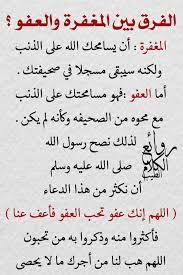 الفرق بين المغفرة والعفو ؟
المغفرة : أن يسامحك الله على الذنب
ولكنه سيبقى مسجلا في صحيفتك .
أما العفو : فهو مسامحتك على الذنب
مع محوه من الصحيفة وكأنه لم يكن .
لذلك نصح رسول الله
صلى الله عليه وسلم
أن نكثر من هذا الدعاء
( اللهم إنك عفو تحب العفو فأعف عنا )
فأكثروا منه وذكروا به من تحبون
اللهم هب لنا من أجرك ما لا يحصى
روائع
الكلام
الطيب